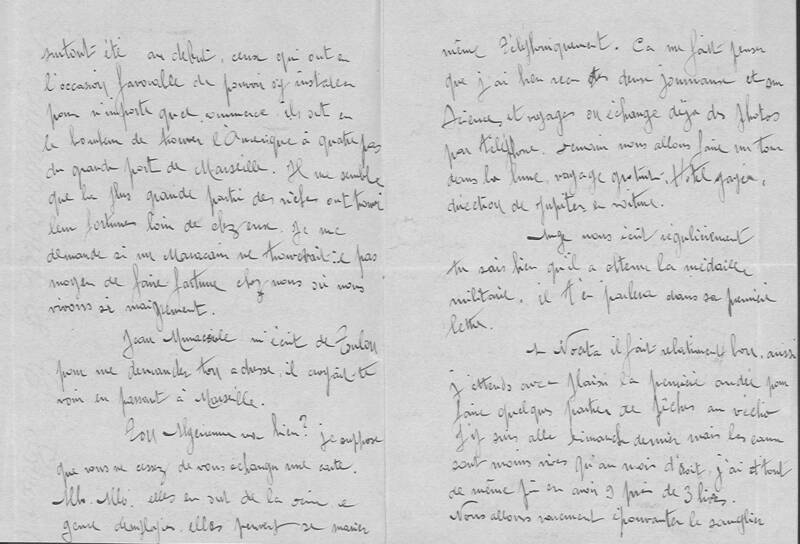 surtout été au début, ceux qui ont eu
l'occasion favorable de pouvoir s'y installer
pour n'importe quel commerce ils ont eu
le bonheur de trouver l'Amérique à quatre pas
du grande port de Marseille. Il me semble
que la plus grande partie des riches ont trouvé
leur fortunes loin de chez eux. Je me
demande si un Marocain ne trouverait-il pas
moyen de faire fortune chez nous où nous
vivons si maigrement.
Jean m'écrit de Toulon
pour me demander ton adresse, il croyait te
voir en passant à Marseille.
Ton va bien? je suppose
que vous ne cessez de vous échanger une carte.
Allo. Allo. elles en ont de la veine, ce
genre d'employées, elles peuvent se marier
même téléphoniquement. Ca me fait penser
que j'ai bien reçu tes deux journaux et sur
Sciences et voyages on échange déja des photos
par téléphone. Demain nous allons faire un tour
dans la lune, voyage gratuit, Hotel payé,
direction de Jupiter en voiture.
Ange nous écrit régulièrement
tu sais bien qu'il a obtenu la médaille
militaire, il t'en parlera dans sa première
lettre.
A il fait relativement bon, aussi
j'attends avec plaisir la première ondée pour
faire quelques parties de pêches au vecchio
J'y suis allé dimanche dernier mais les eaux
sont moins vives qu'au mois d'Août, j'ai tout
de même pu en avoir 9 près de 3 livres.
Nous allons rarement épouvanter le sanglier